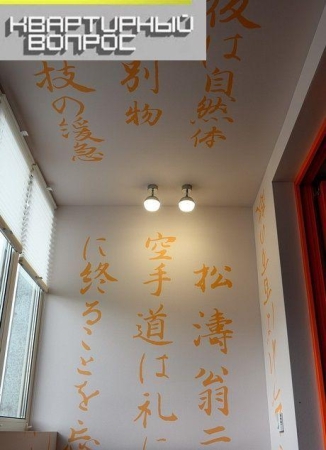 КВАРТИРНЫЙ
ВОПРОС
夜は自然体
別物
技の緩急
松濤翁二
空手道は礼に
に終ることを忘